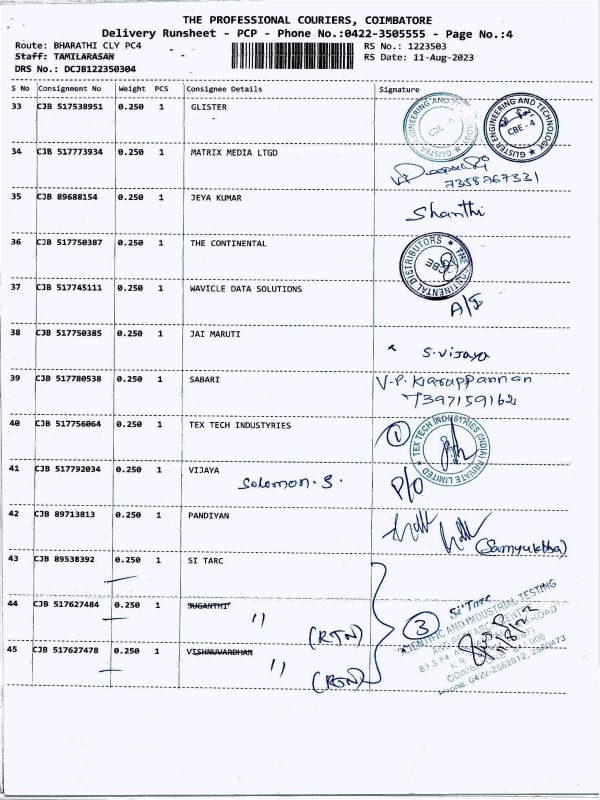 THE PROFESSIONAL COURIERS, COIMBATORE
Delivery Runsheet - PCP - Phone No.:0422-3505555 - Page No.:4
Route: BHARATHI CLY PC4 RS No.: 1223503
Staff: TAMILARASAN RS Date: 11-Aug-2023
DRS No.: DCJB122350304
S No Consignment No Weight PCS Consignee Details Signature
33 CJB 517538951 0.250 1 GLISTER
GLISTER ENGINEERING AND TECHNOLOGY CBE-4
34 CJB 517773934 0.250 1 MATRIX MEDIA LTGD
7358767331
35 CJB 89688154 0.250 1 JEYA KUMAR Shanthi
36 CJB 517750387 0.250 1 THE CONTINENTAL
THE CONTINENTAL DISTRIBUTORS CBE
37 CJB 517745111 0.250 1 WAVICLE DATA SOLUTIONS
38 CJB 517750385 0.250 1 JAI MARUTI S.vijaya
39 CJB 517780538 0.250 1 SABARI V.P. Karuppannan
7397159162
40 CJB 517756064 0.250 1 TEX TECH INDUSTYRIES 1
TEX TECH INDUSTRIES (INDIA) PRIVATE LIMITED
41 CJB 517792034 0.250 1 VIJAYA
Solomon. S. P/O
42 CJB 89713813 0.250 1 PANDIYAN
(Samyuktha)
43 CJB 89538392 0.250 1 SI TARC
44 CJB 517627484 0.250 1 SUGANTHI Si'Tarc
" (RTN) 3
SCIENTIFIC AND INDUSTRIAL TESTING
45 CJB 517627478 0.250 1 VISHNUVARDHAN
" (RTN)